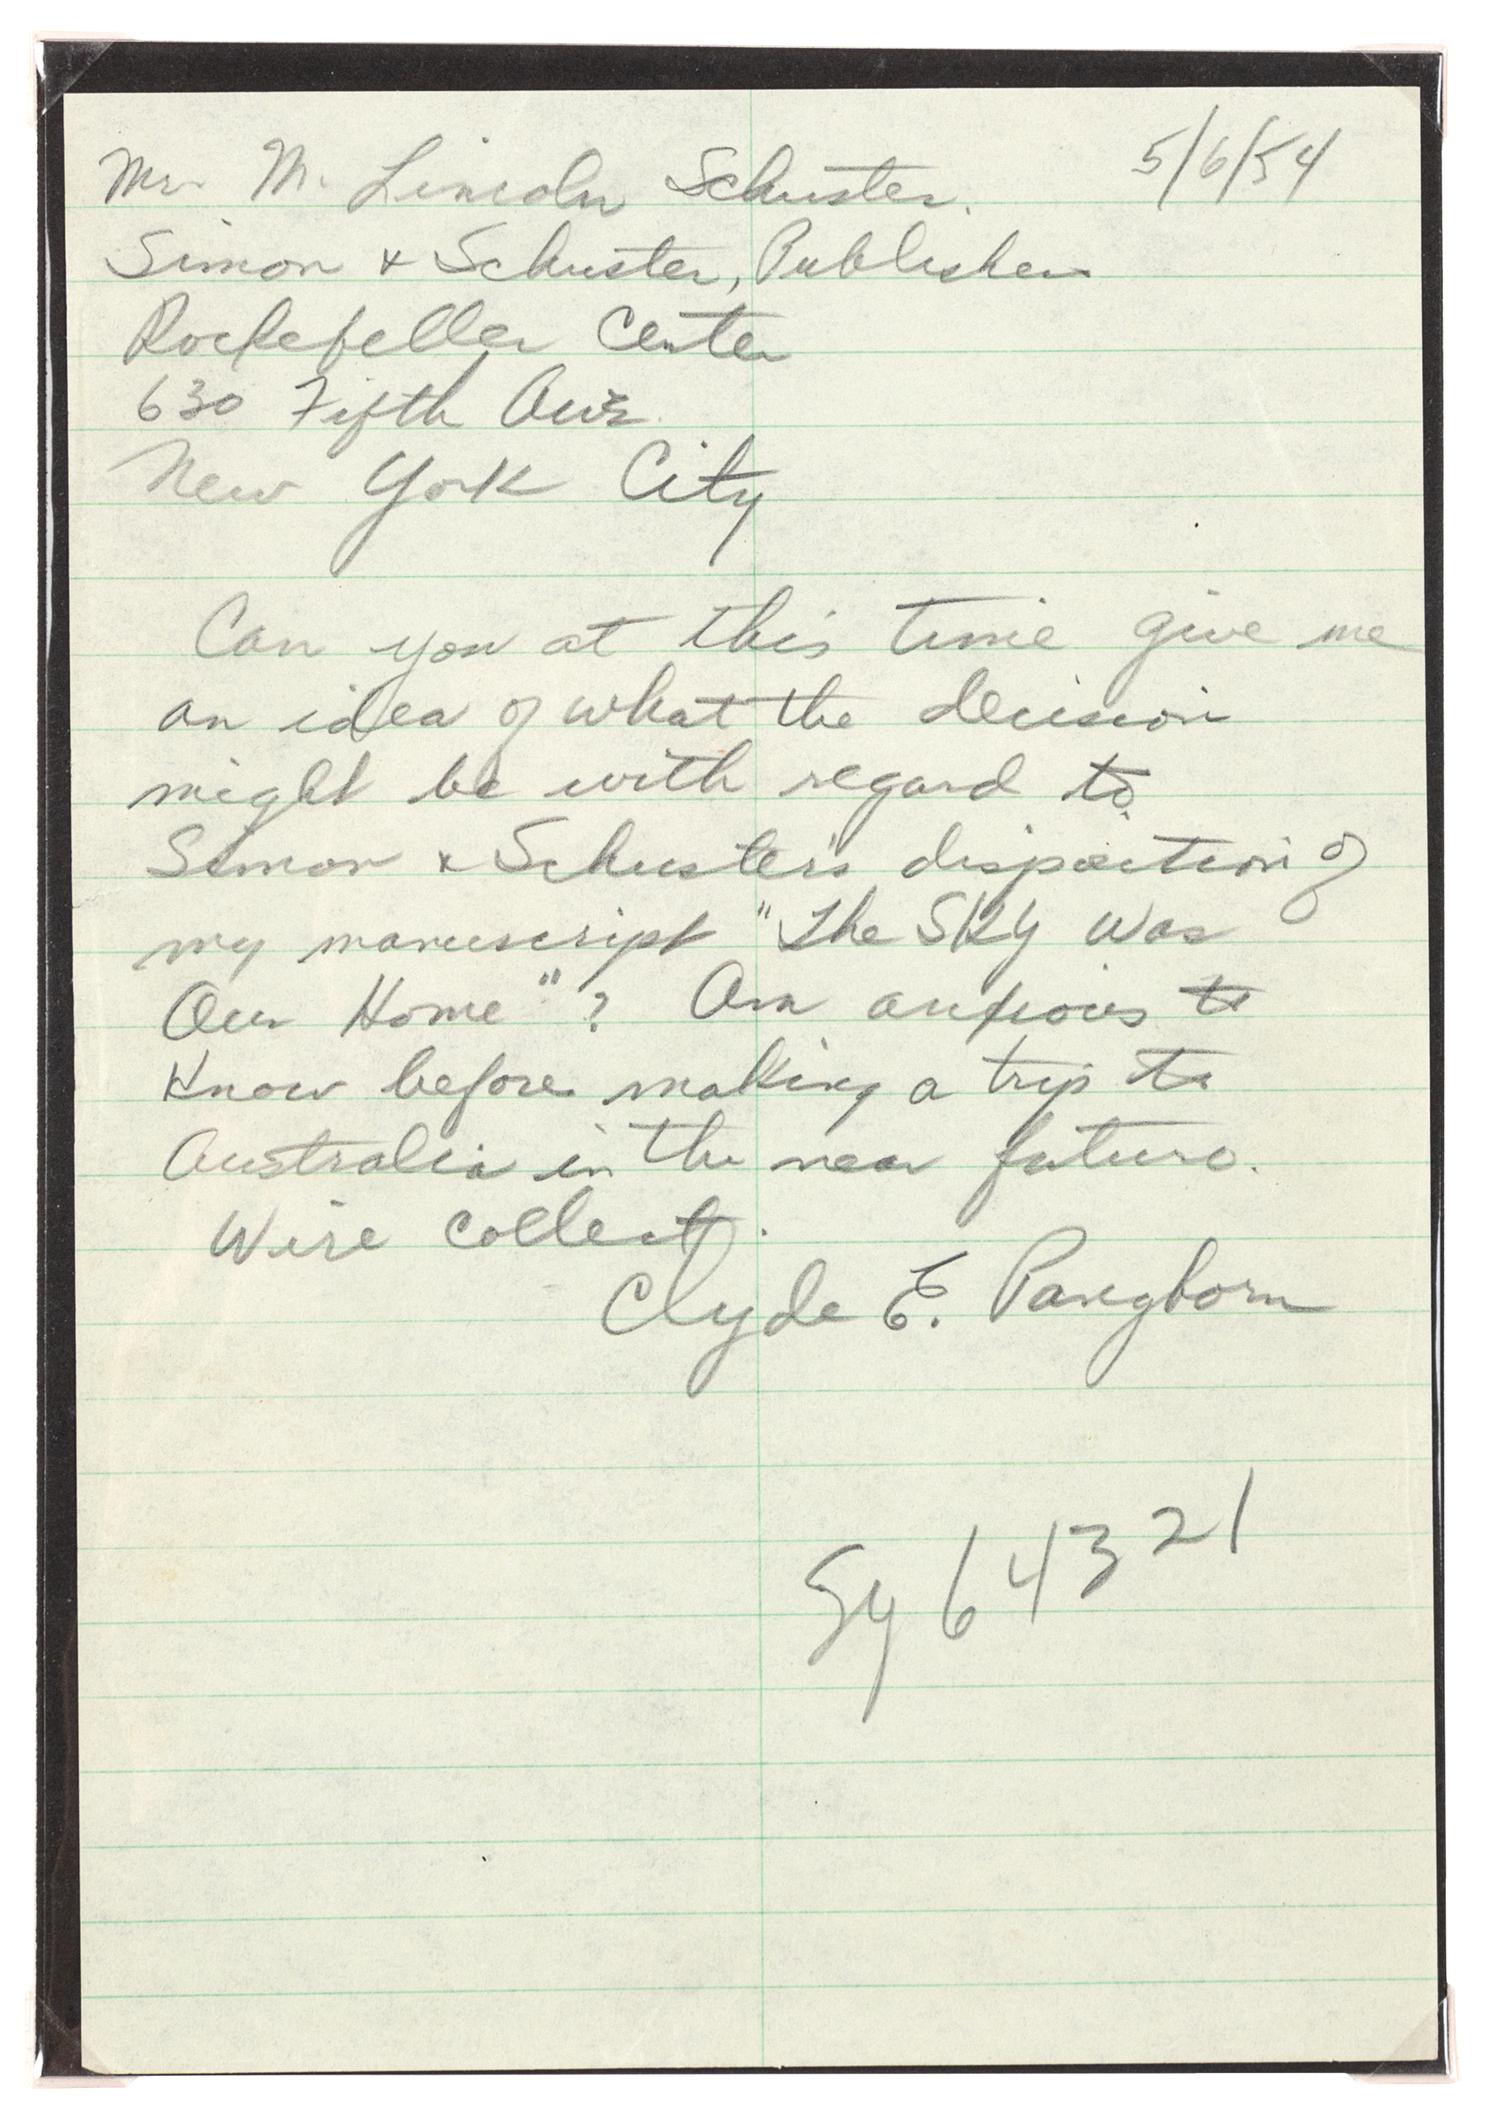 5/6/54
Mr. M. Lincoln Schuster.
Simon & Schuster, Publishers
Rockefeller Center
630 Fifth Ave
New York City
Can you at this time give me
an idea of what the decision
might be with regard to
Simon & Schuster's dispostion of
my manuscript "The Sky Was
Our Home"? Am anxious to
Know before making a trip to
Australia in the near future.
Wire collect.
Clyde E. Pangborn
Sy 64321